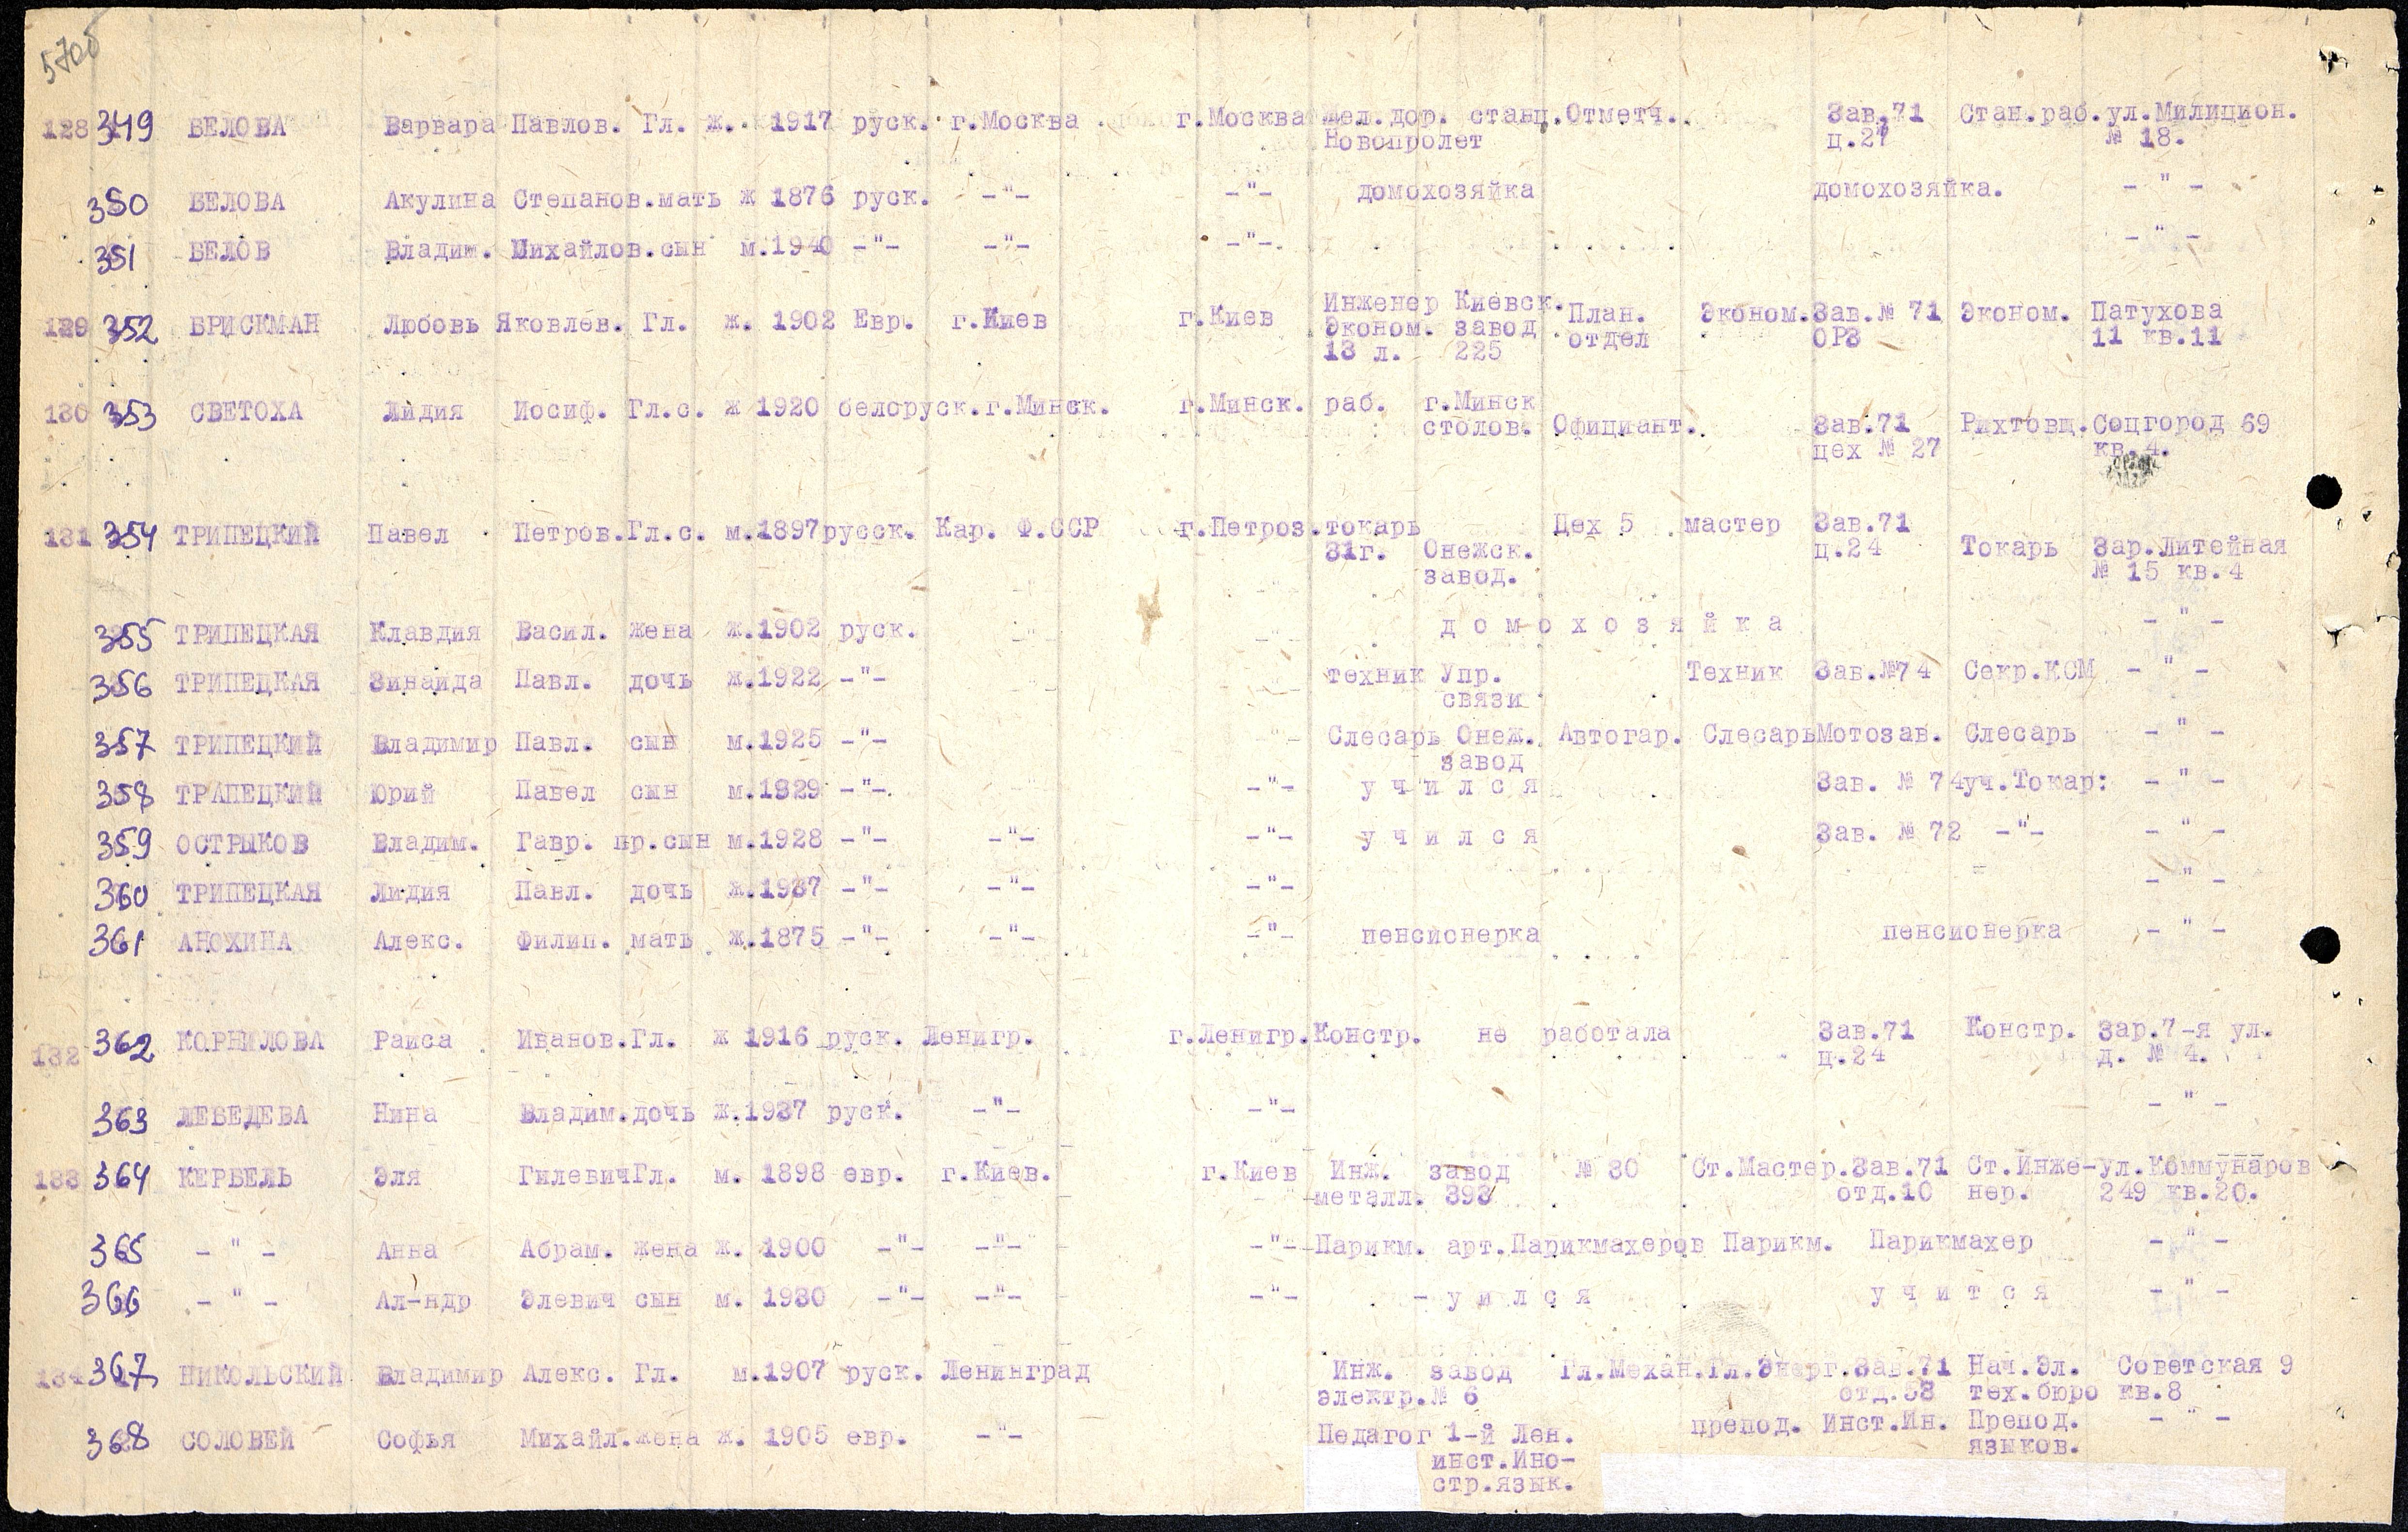 570б
128 349 БЕЛОВА Варвара Павлов. Гл. ж. 1917 руск. г.Москва г.Москва Жел.дор. станц. Отметч. Зав.71 Стан.раб. ул.Милицион.
Новопролет ц.27 № 18.
350 БЕЛОВА Акулина Степанов. мать ж 1876 руск. -"- -"- домохозяйка домохозяйка. - " -
351 БЕЛОВ Владим. Михайлов. сын м.1940 -"- -"- -"- - " -
129 352 БРИСКМАН Любовь Яковлев. Гл. ж. 1902 Евр. г.Киев г.Киев Инженер Киевск. План. Эконом. Зав.№ 71 Эконом. Патухова
Эконом. завод отдел ОРЗ 11 кв.11
13 л. 225
130 353 СВЕТОХА Лидия Иосиф. Гл.с. ж 1920 белоруск. г.Минск. г.Минск. раб. г.Минск
столов. Официант. Зав.71 Рихтовщ. Соцгород 69
цех № 27 кв.4.
131 354 ТРИПЕЦКИЙ Павел Петров. Гл.с. м.1897 русск. Кар. Ф.ССР г.Петроз. токарь Цех 5 мастер Зав.71
31г. Онежск. ц.24 Токарь Зар.Литейная
завод. № 15 кв.4
355 ТРИПЕЦКАЯ Клавдия Васил. жена ж.1902 руск. д о м о х о з я й к а - " -
356 ТРИПЕЦКАЯ Зинаида Павл. дочь ж.1922 -"- техник Упр. Техник Зав.№74 Секр.КСМ - " -
связи
357 ТРИПЕЦКИЙ Владимир Павл. сын м.1925 -"- Слесарь Онеж. Автогар. Слесарь Мотозав. Слесарь - " -
завод
358 ТРАПЕЦКИЙ Юрий Павел сын м.1929 -"- -"- у ч и л с я Зав. № 74 уч.Токар: - " -
359 ОСТРЫКОВ Владим. Гавр. пр.сын м.1928 -"- -"- -"- у ч и л с я Зав. № 72 -"- - " -
360 ТРИПЕЦКАЯ Лидия Павл. дочь ж.1937 -"- -"- -"- - " -
361 АНОХИНА Алекс. Филип. мать ж.1875 -"- -"- -"- пенсионерка пенсионерка - " -
132 362 КОРНИЛОВА Раиса Иванов. Гл. ж 1916 руск. Ленигр. г.Ленигр. Констр. не работала Зав.71 Констр. Зар.7-я ул.
ц.24 д. № 4.
363 ЛЕБЕДЕВА Нина Владим. дочь ж.1937 руск. -"- -"- - " -
133 364 КЕРБЕЛЬ Эля Гилевич Гл. м. 1898 евр. г.Киев. г.Киев Инж. завод № 30 Ст.Мастер. Зав.71 Ст.Инже- ул.Коммунаров
металл. 393 отд.10 нер. 249 кв.20.
365 - " - Анна Абрам. жена ж. 1900 -"- -"- -"- Парикм. арт.Парикмахеров Парикм. Парикмахер - " -
366 - " - Ал-ндр Элевич сын м. 1930 -"- -"- -"- - у и л с я у ч и т с я - " -
134 367 НИКОЛЬСКИЙ Владимир Алекс. Гл. м.1907 руск. Ленинград Инж. завод Гл.Механ. Гл.Энерг. Зав.71 Нач.Эл. Советская 9
электр. № 6 отд.38 тех.бюро кв.8
368 СОЛОВЕЙ Софья Михайл. жена ж. 1905 евр. -"- Педагог 1-й Лен. препод. Инст.Ин. Препод. - " -
инст.Ино- языков.
стр.язык.